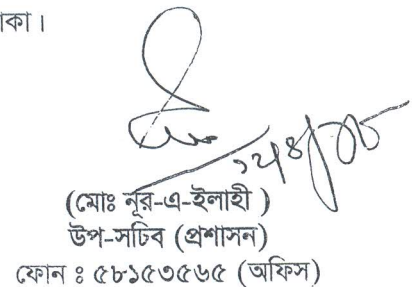 াকা।
(মোঃ নূর-এ-ইলাহী )
উপ-সচিব (প্রশাসন)
ফোন ঃ ৫৮১৫৩৫৬৫ (অফিস)